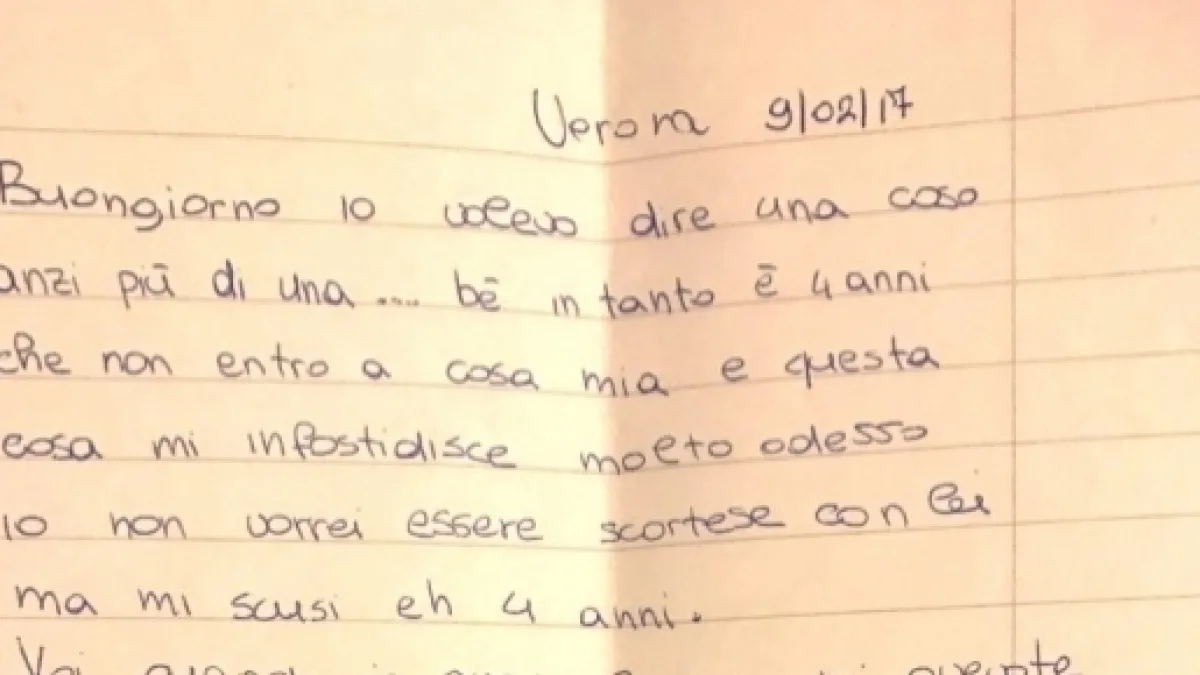 Verona 9/02/17
Buongiorno io volevo dire una cosa
anzi più di una .... bè intanto è 4 anni
che non entro a casa mia e questa
cosa mi infastidisce molto adesso
io non vorrei essere scortese con lei
ma mi scusi eh 4 anni.
Voi